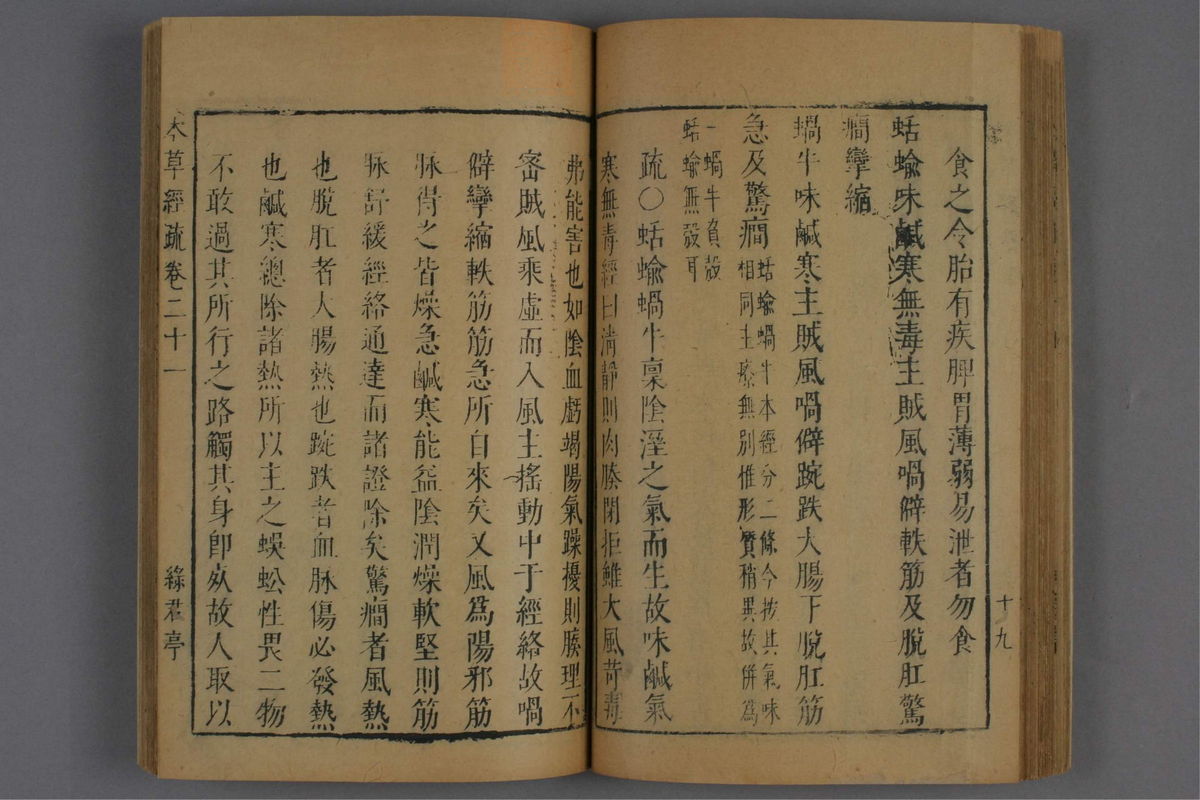 食之令胎有疾脾胃薄弱易泄者勿食
蛞蝓味鹹寒無毒主賊風喎僻軼筋及脫肛驚
癇攣縮
蝸牛味鹹寒主賊風喎僻踠跌大腸下脫肛筋
急及驚癇
蛞蝓蝸牛本經分二條今按其氣味
相同主療無別惟形質稍異故併爲
一蝸牛負殼
蛞蝓無殼耳
疏〇蛞蝓蝸牛稟陰溼之氣而生故味鹹氣
寒無毒經曰淸靜則肉腠閉拒雖大風苛毒
弗能害也如陰血虧竭陽氣躁擾則腠理不
密賊風乘虛而入風主搖動中于經絡故喎
僻攣縮軼筋筋急所自來矣又風爲陽邪筋
脉得之皆燥急鹹寒能益陰潤燥軟堅則筋
脉舒緩經絡通達而諸證除矣驚癇者風熱
也脫肛者大腸熱也踠跌者血脉傷必發熱
也鹹寒總除諸熱所以主之蜈蚣性畏二物
不敢過其所行之路觸其身卽死故人取以
本草經疏卷二十一
綠君亭
十九